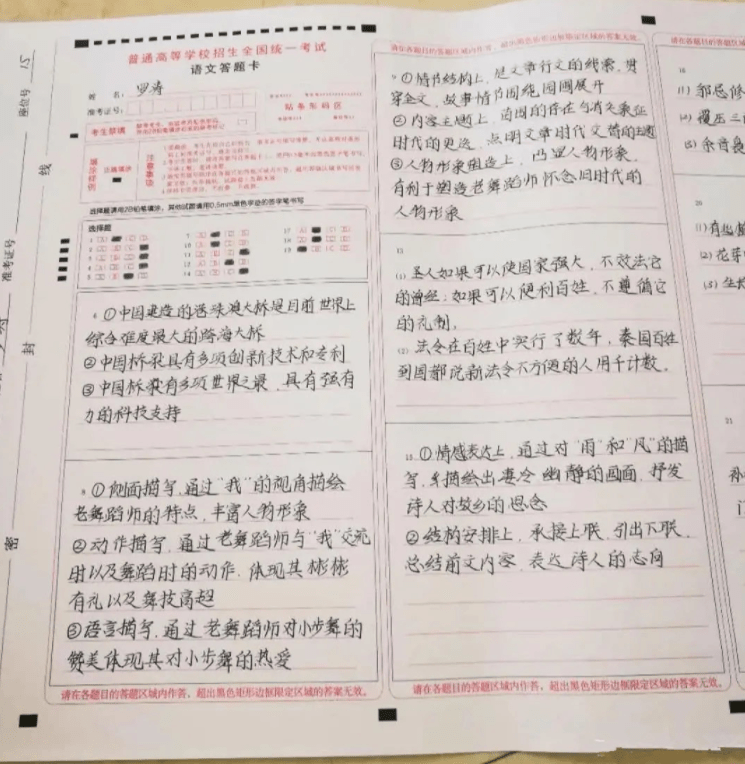 座位号 15
准考证号
线
封
密
普通高等学校招生全国统一考试
语文答题卡
姓 名: 罗涛
准考证号:
贴条形码区
考生禁填
填涂样例
正确填涂
注意事项
选择题请用2B铅笔填涂,其他试题请用0.5mm黑色字迹的签字笔书写
选择题
6 ①中国建造的港珠澳大桥是目前世界上
综合难度最大的跨海大桥
②中国桥梁具有多项创新技术和专利
③中国桥梁有多项世界之最,具有强有
力的科技支持
8 ①侧面描写,通过“我”的视角描绘
老舞蹈师的特点,丰富人物形象
②动作描写,通过老舞蹈师与“我”交流
时以及舞蹈时的动作,体现其彬彬
有礼以及舞技高超
③语言描写,通过老舞蹈师对小步舞的
赞美体现其对小步舞的热爱
请在各题目的答题区域内作答,超出黑色矩形边框限定区域的答案无效。
请在各题目的答题区域内作答,超出黑色矩形边框限定区域的答案无效。
9 ①情节结构上,是文章行文的线索,贯
穿全文,故事情节围绕园圃展开
②内容主题上,苗圃的存在与消失象征
时代的更迭,点明文章时代交替的主题
③人物形象塑造上,凸显人物形象,
有利于塑造老舞蹈师怀念旧时代的
人物形象
13
(1) 圣人如果可以使国家强大,不效法它
的曾经;如果可以便利百姓,不遵循它
的礼制。
(2) 法令在百姓中实行了数年,秦国百姓
到国都说新法令不方便的人用千计数。
15 ①情感表达上,通过对“雨”和“风”的描
写,描绘出凄冷幽静的画面,抒发
诗人对故乡的思念
②结构安排上,承接上联,引出下联,
总结前文内容,表达诗人的志向
请在各题目的答题区域内作答,超出黑色矩形边框限定区域的答案无效。
请在各题目的
16
(1) 郭忌修
(2) 覆压三
(3) 余音袅
20
(1) 有些
(2) 花芽
(3) 生长
21